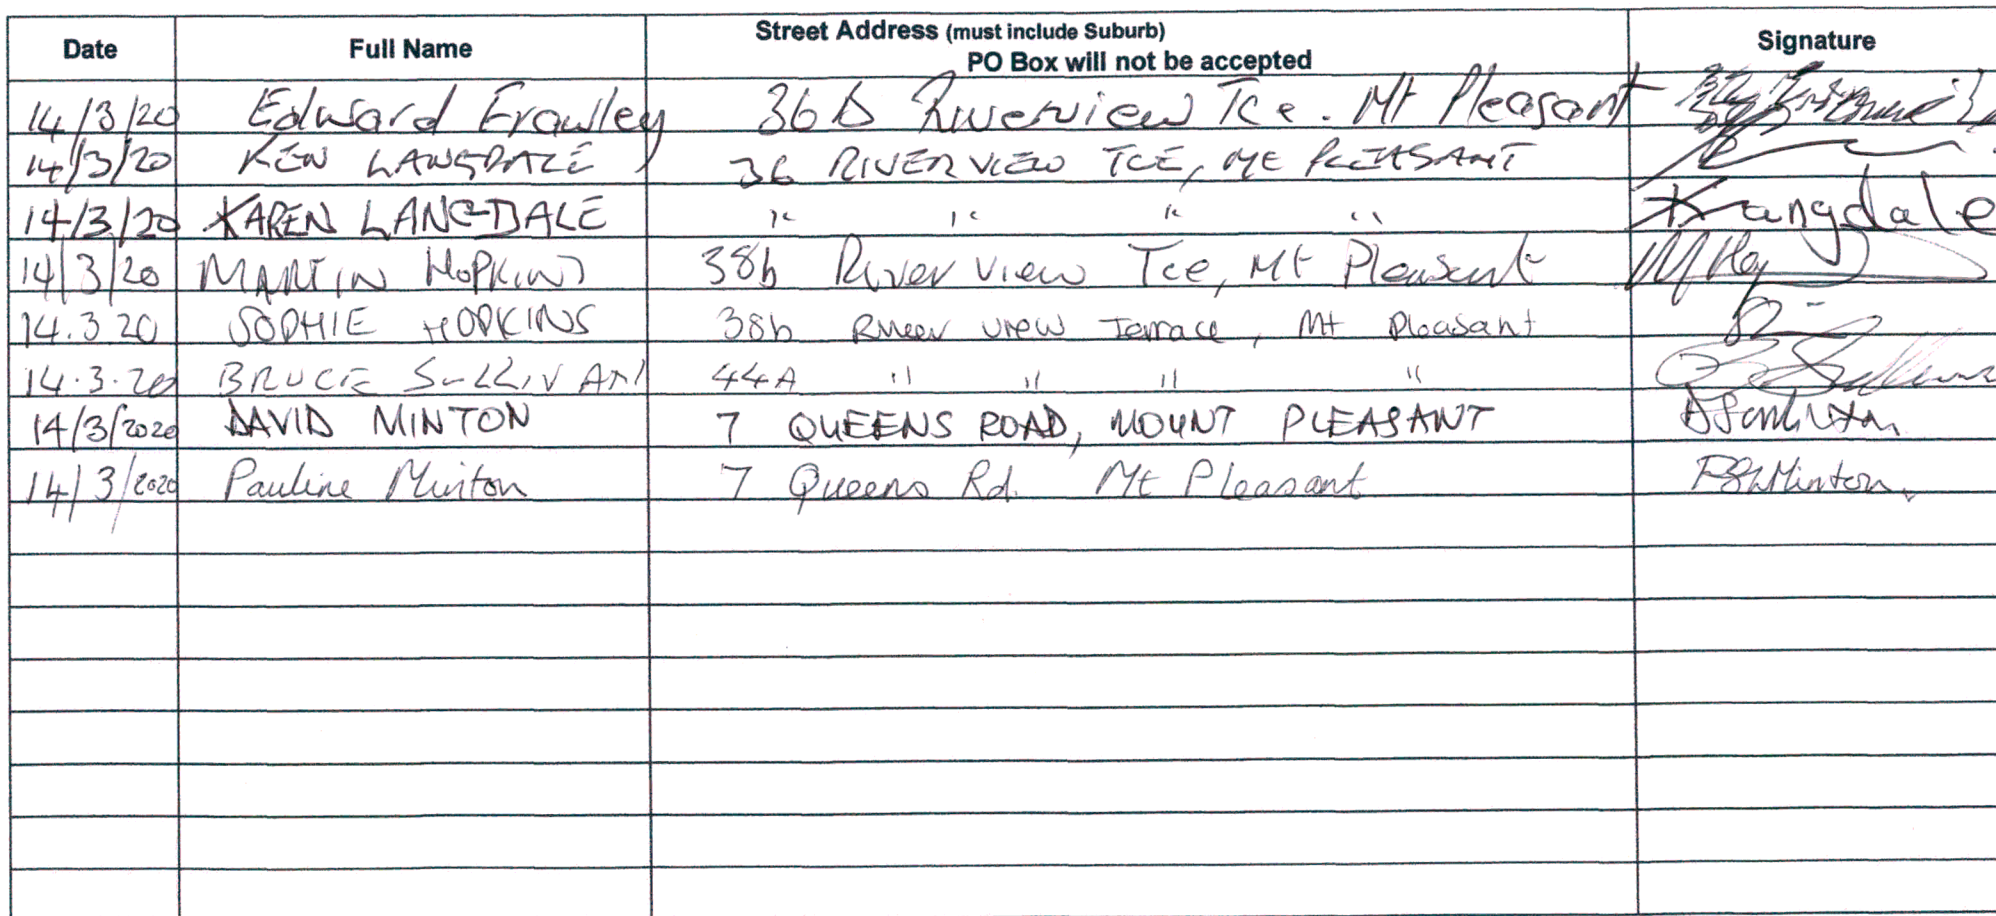 Date Full Name Street Address (must include Suburb) PO Box will not be accepted Signature
14/3/20 Edward Frawley 36b Riverview Tce. Mt Pleasant
14/3/20 KEN LANGDALE 36 RIVERVIEW TCE, Mt PLEASANT
14/3/20 KAREN LANGDALE " " " " KLangdale
14/3/20 MARTIN HOPKINS 38b River view Tce, Mt Pleasant
14.3.20 SOPHIE HOPKINS 38b River view Terrace, Mt Pleasant
14.3.20 BRUCE SULLIVAN 44A " " " " B Sullivan
14/3/2020 DAVID MINTON 7 QUEENS ROAD, MOUNT PLEASANT
14/3/2020 Pauline Minton 7 Queens Rd. Mt Pleasant Minton.